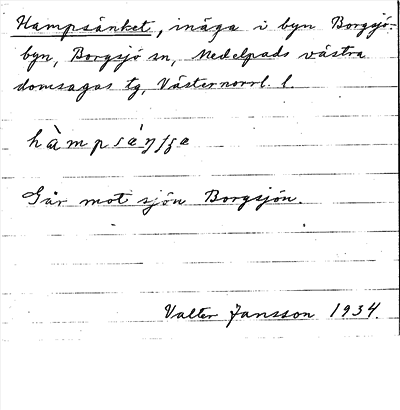 Hampsänket, inäga i byn Borgsjö-
byn, Borgsjö sn, Medelpads västra
domsagas tg, Västernorrl. l.
Går mot sjön Borgsjön.
Valter Jansson 1934.